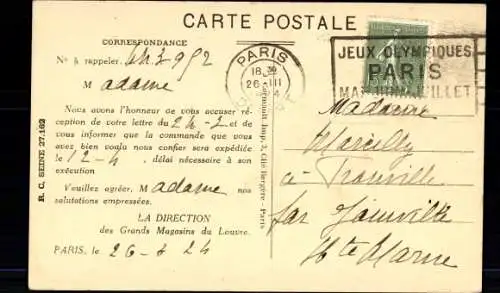 CARTE POSTALE
CORRESPONDANCE
No à rappeler,
M adame
Nous avons l'honneur de vous accuser ré-
ception de votre lettre du 24-3 et de
vous informer que la commande que vous
avez bien voulu nous confier sera expédiée
le 12-4, délai nécessaire à son
exécution
Veuillez agréer, M adame nos
salutations empressées.
LA DIRECTION
des Grands Magasins du Louvre.
PARIS, le 26-3 24
R. C. SEINE 27.162
Imp., 3, Cité Bergère - Paris
PARIS
18
26-III
JEUX OLYMPIQUES
PARIS
MAI JUIN JUILLET
Madame
Marcilly
à Trouville
par Joinville
Hte Marne